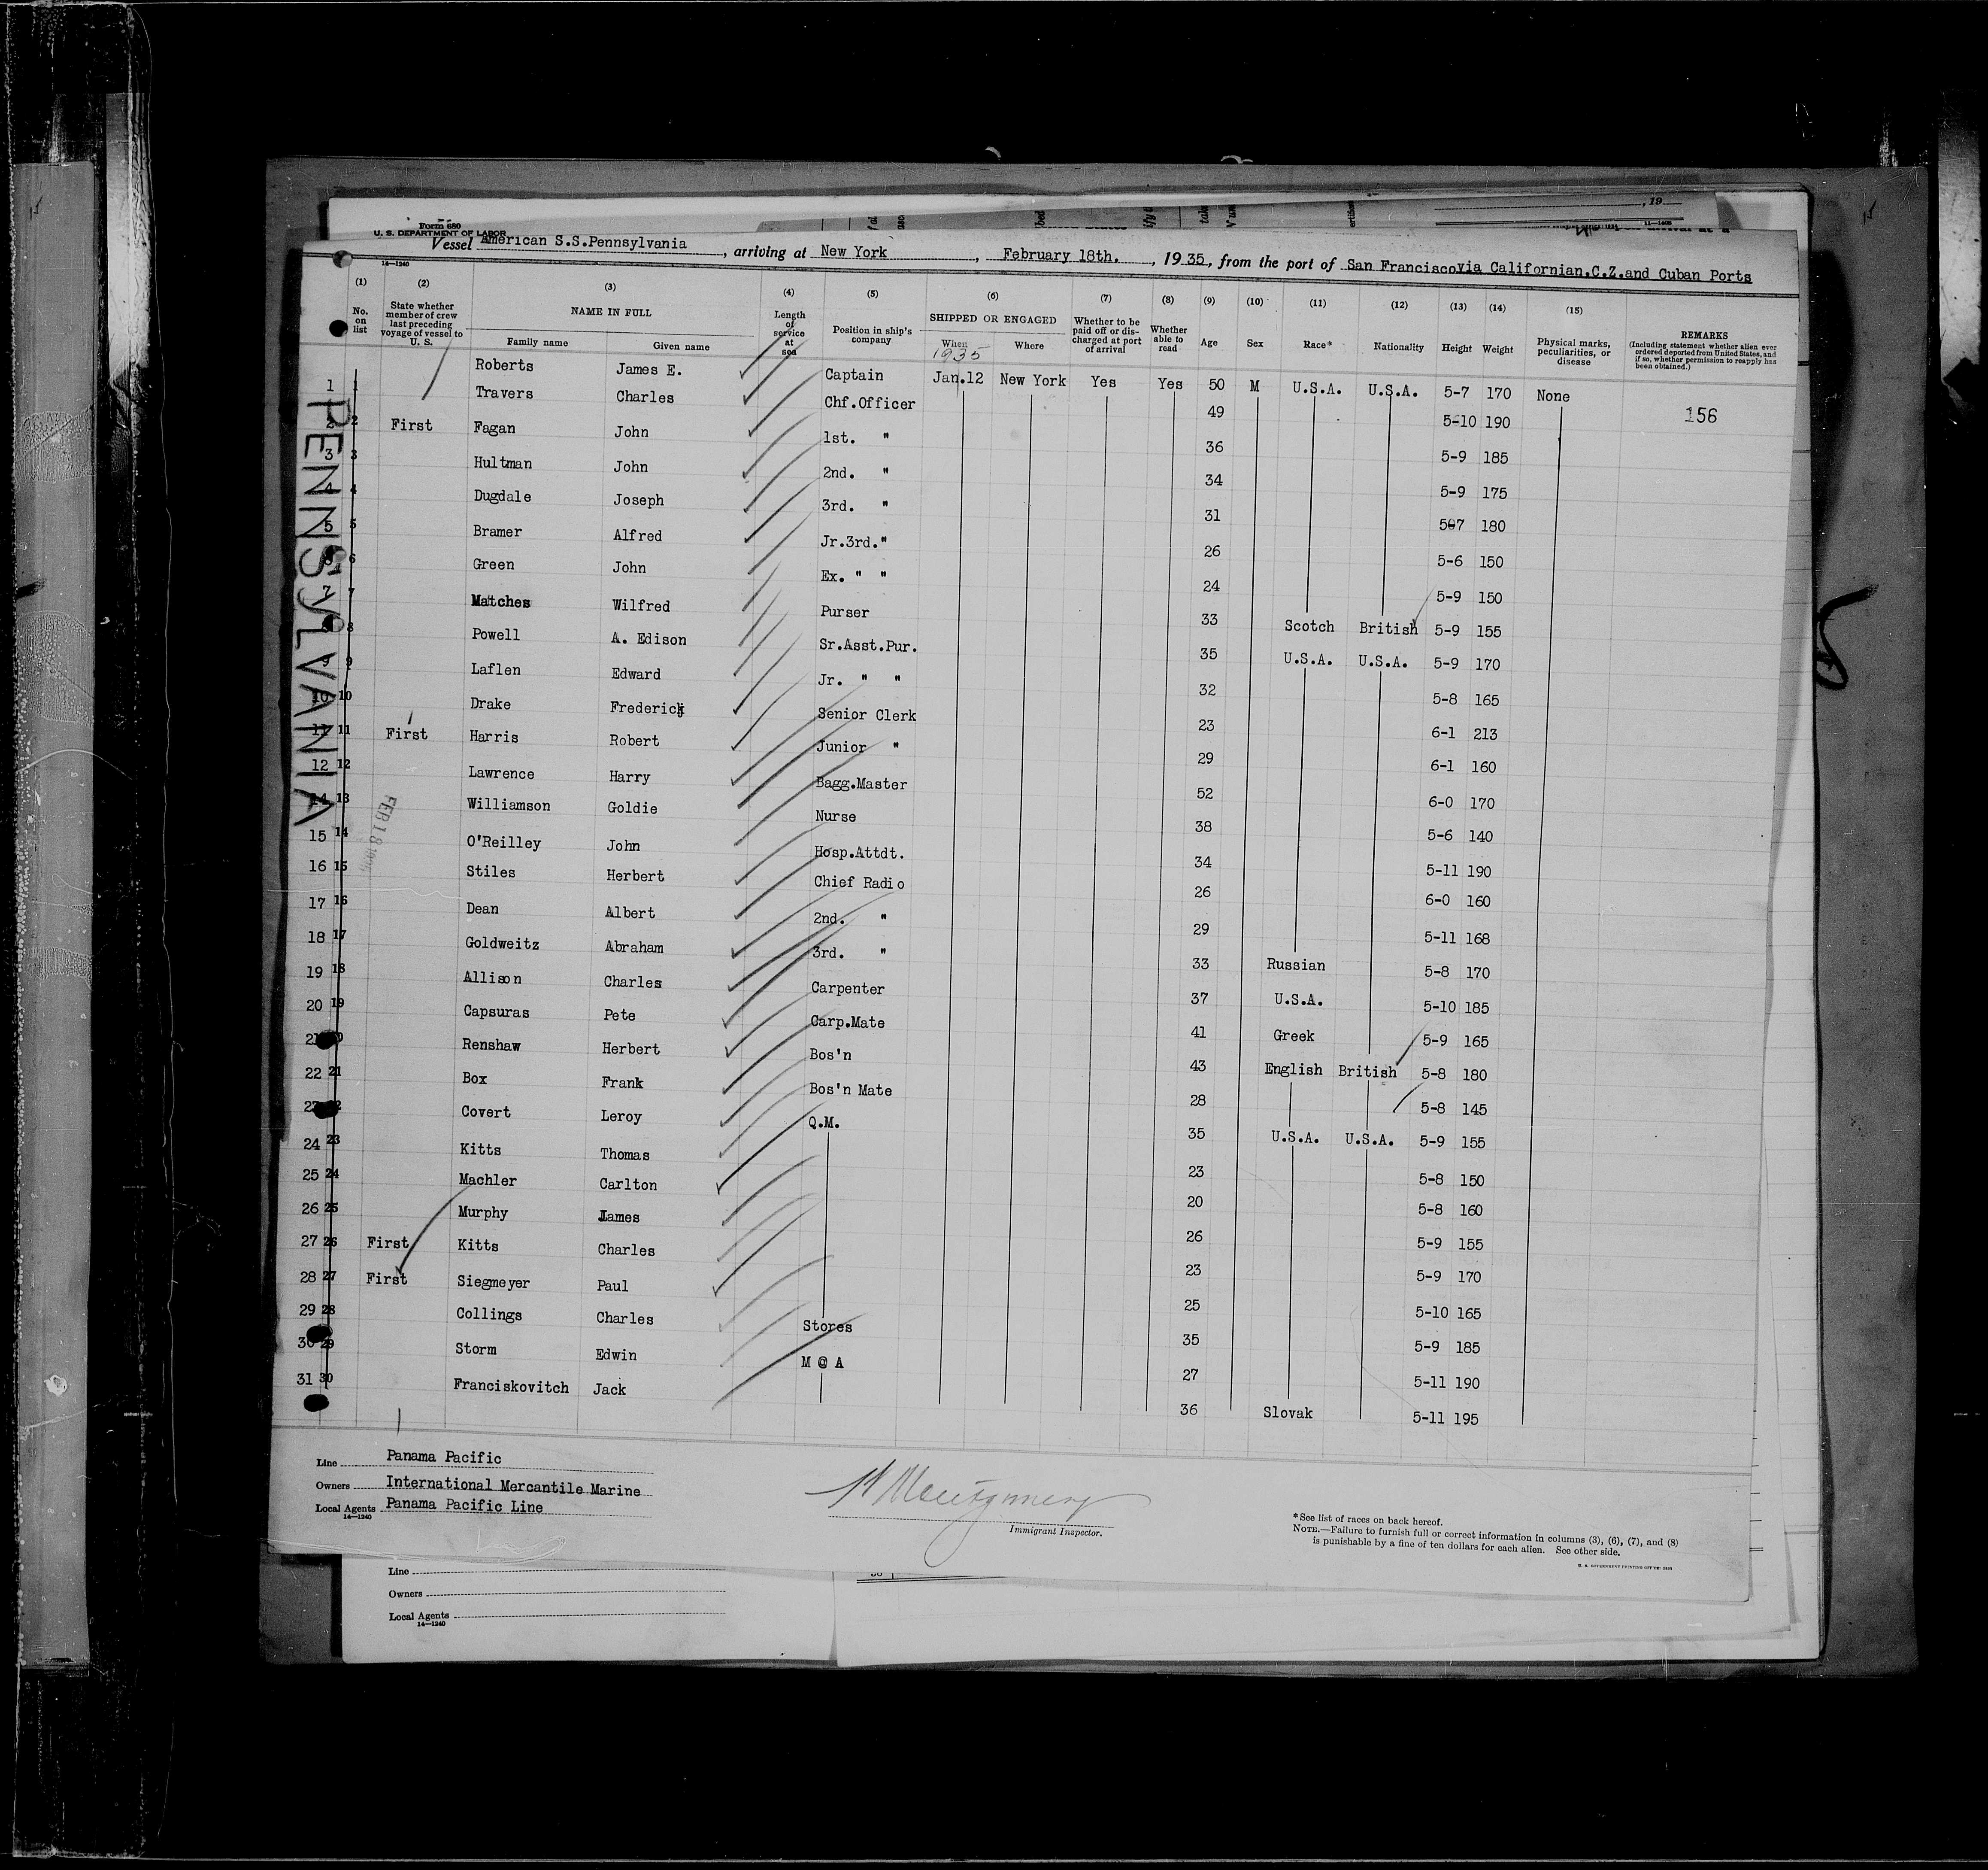 Form 680
U. S. DEPARTMENT OF LABOR
Vessel American S.S.Pennsylvania, arriving at New York, February 18th., 1935, from the port of San Franciscovia Californian.C.Z.and Cuban Ports
14—1240
(1) (2) (3) (4) (5) (6) (7) (8) (9) (10) (11) (12) (13) (14) (15)
No. on list State whether member of crew last preceding voyage of vessel to U. S. NAME IN FULL Family name Given name Length of service at sea Position in ship's company SHIPPED OR ENGAGED When Where Whether to be paid off or discharged at port of arrival Whether able to read Age Sex Race* Nationality Height Weight Physical marks, peculiarities, or disease REMARKS (Including statement whether alien ever ordered deported from United States, and if so, whether permission to reapply has been obtained.)
1935
1 1 Roberts James E. Captain Jan.12 New York Yes Yes 50 M U.S.A. U.S.A. 5-7 170 None
2 2 First Travers Charles Chf.Officer 49 5-10 190 156
3 3 Fagan John 1st. " 36 5-9 185
4 4 Hultman John 2nd. " 34 5-9 175
5 5 Dugdale Joseph 3rd. " 31 5-7 180
6 6 Bramer Alfred Jr.3rd." 26 5-6 150
7 7 Green John Ex. " " 24 5-9 150
8 8 Matches Wilfred Purser 33 Scotch British 5-9 155
9 9 Powell A. Edison Sr.Asst.Pur. 35 U.S.A. U.S.A. 5-9 170
10 10 Laflen Edward Jr. " " 32 5-8 165
11 11 First Drake Frederick Senior Clerk 23 6-1 213
12 12 Harris Robert Junior " 29 6-1 160
14 13 Lawrence Harry Bagg.Master 52 6-0 170
15 14 Williamson Goldie Nurse 38 5-6 140
16 15 O'Reilley John Hosp.Attdt. 34 5-11 190
17 16 Stiles Herbert Chief Radio 26 6-0 160
18 17 Dean Albert 2nd. " 29 5-11 168
19 18 Goldweitz Abraham 3rd. " 33 Russian 5-8 170
20 19 Allison Charles Carpenter 37 U.S.A. 5-10 185
21 Capsuras Pete Carp.Mate 41 Greek 5-9 165
22 21 Renshaw Herbert Bos'n 43 English British 5-8 180
23 Box Frank Bos'n Mate 28 5-8 145
24 23 Covert Leroy Q.M. 35 U.S.A. U.S.A. 5-9 155
25 24 Kitts Thomas 23 5-8 150
26 25 Machler Carlton 20 5-8 160
27 26 First Murphy James 26 5-9 155
28 27 First Kitts Charles 23 5-9 170
29 28 Siegmeyer Paul 25 5-10 165
30 29 Collings Charles Stores 35 5-9 185
31 30 Storm Edwin M @ A 27 5-11 190
Franciskovitch Jack 36 Slovak 5-11 195
PENNSYLVANIA
FEB 18
Line Panama Pacific
Owners International Mercantile Marine
Local Agents Panama Pacific Line
14—1240
Montgomery
Immigrant Inspector.
*See list of races on back hereof.
NOTE.—Failure to furnish full or correct information in columns (3), (6), (7), and (8)
is punishable by a fine of ten dollars for each alien. See other side.
Line
Owners
Local Agents
14—1240